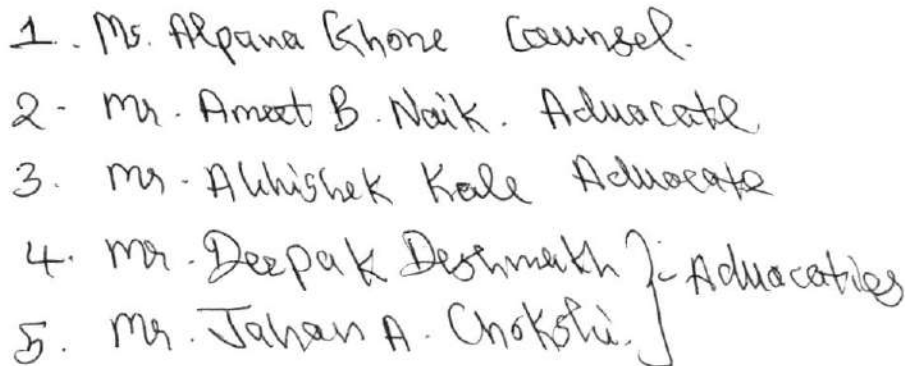 1. Ms. Alpana Ghone Counsel.
2. Mr. Ameet B. Naik. Advocate
3. Mr. Abhishek Kale Advocate
4. Mr. Deepak Deshmukh } Advocates
5. Mr. Jahan A. Chokshi.